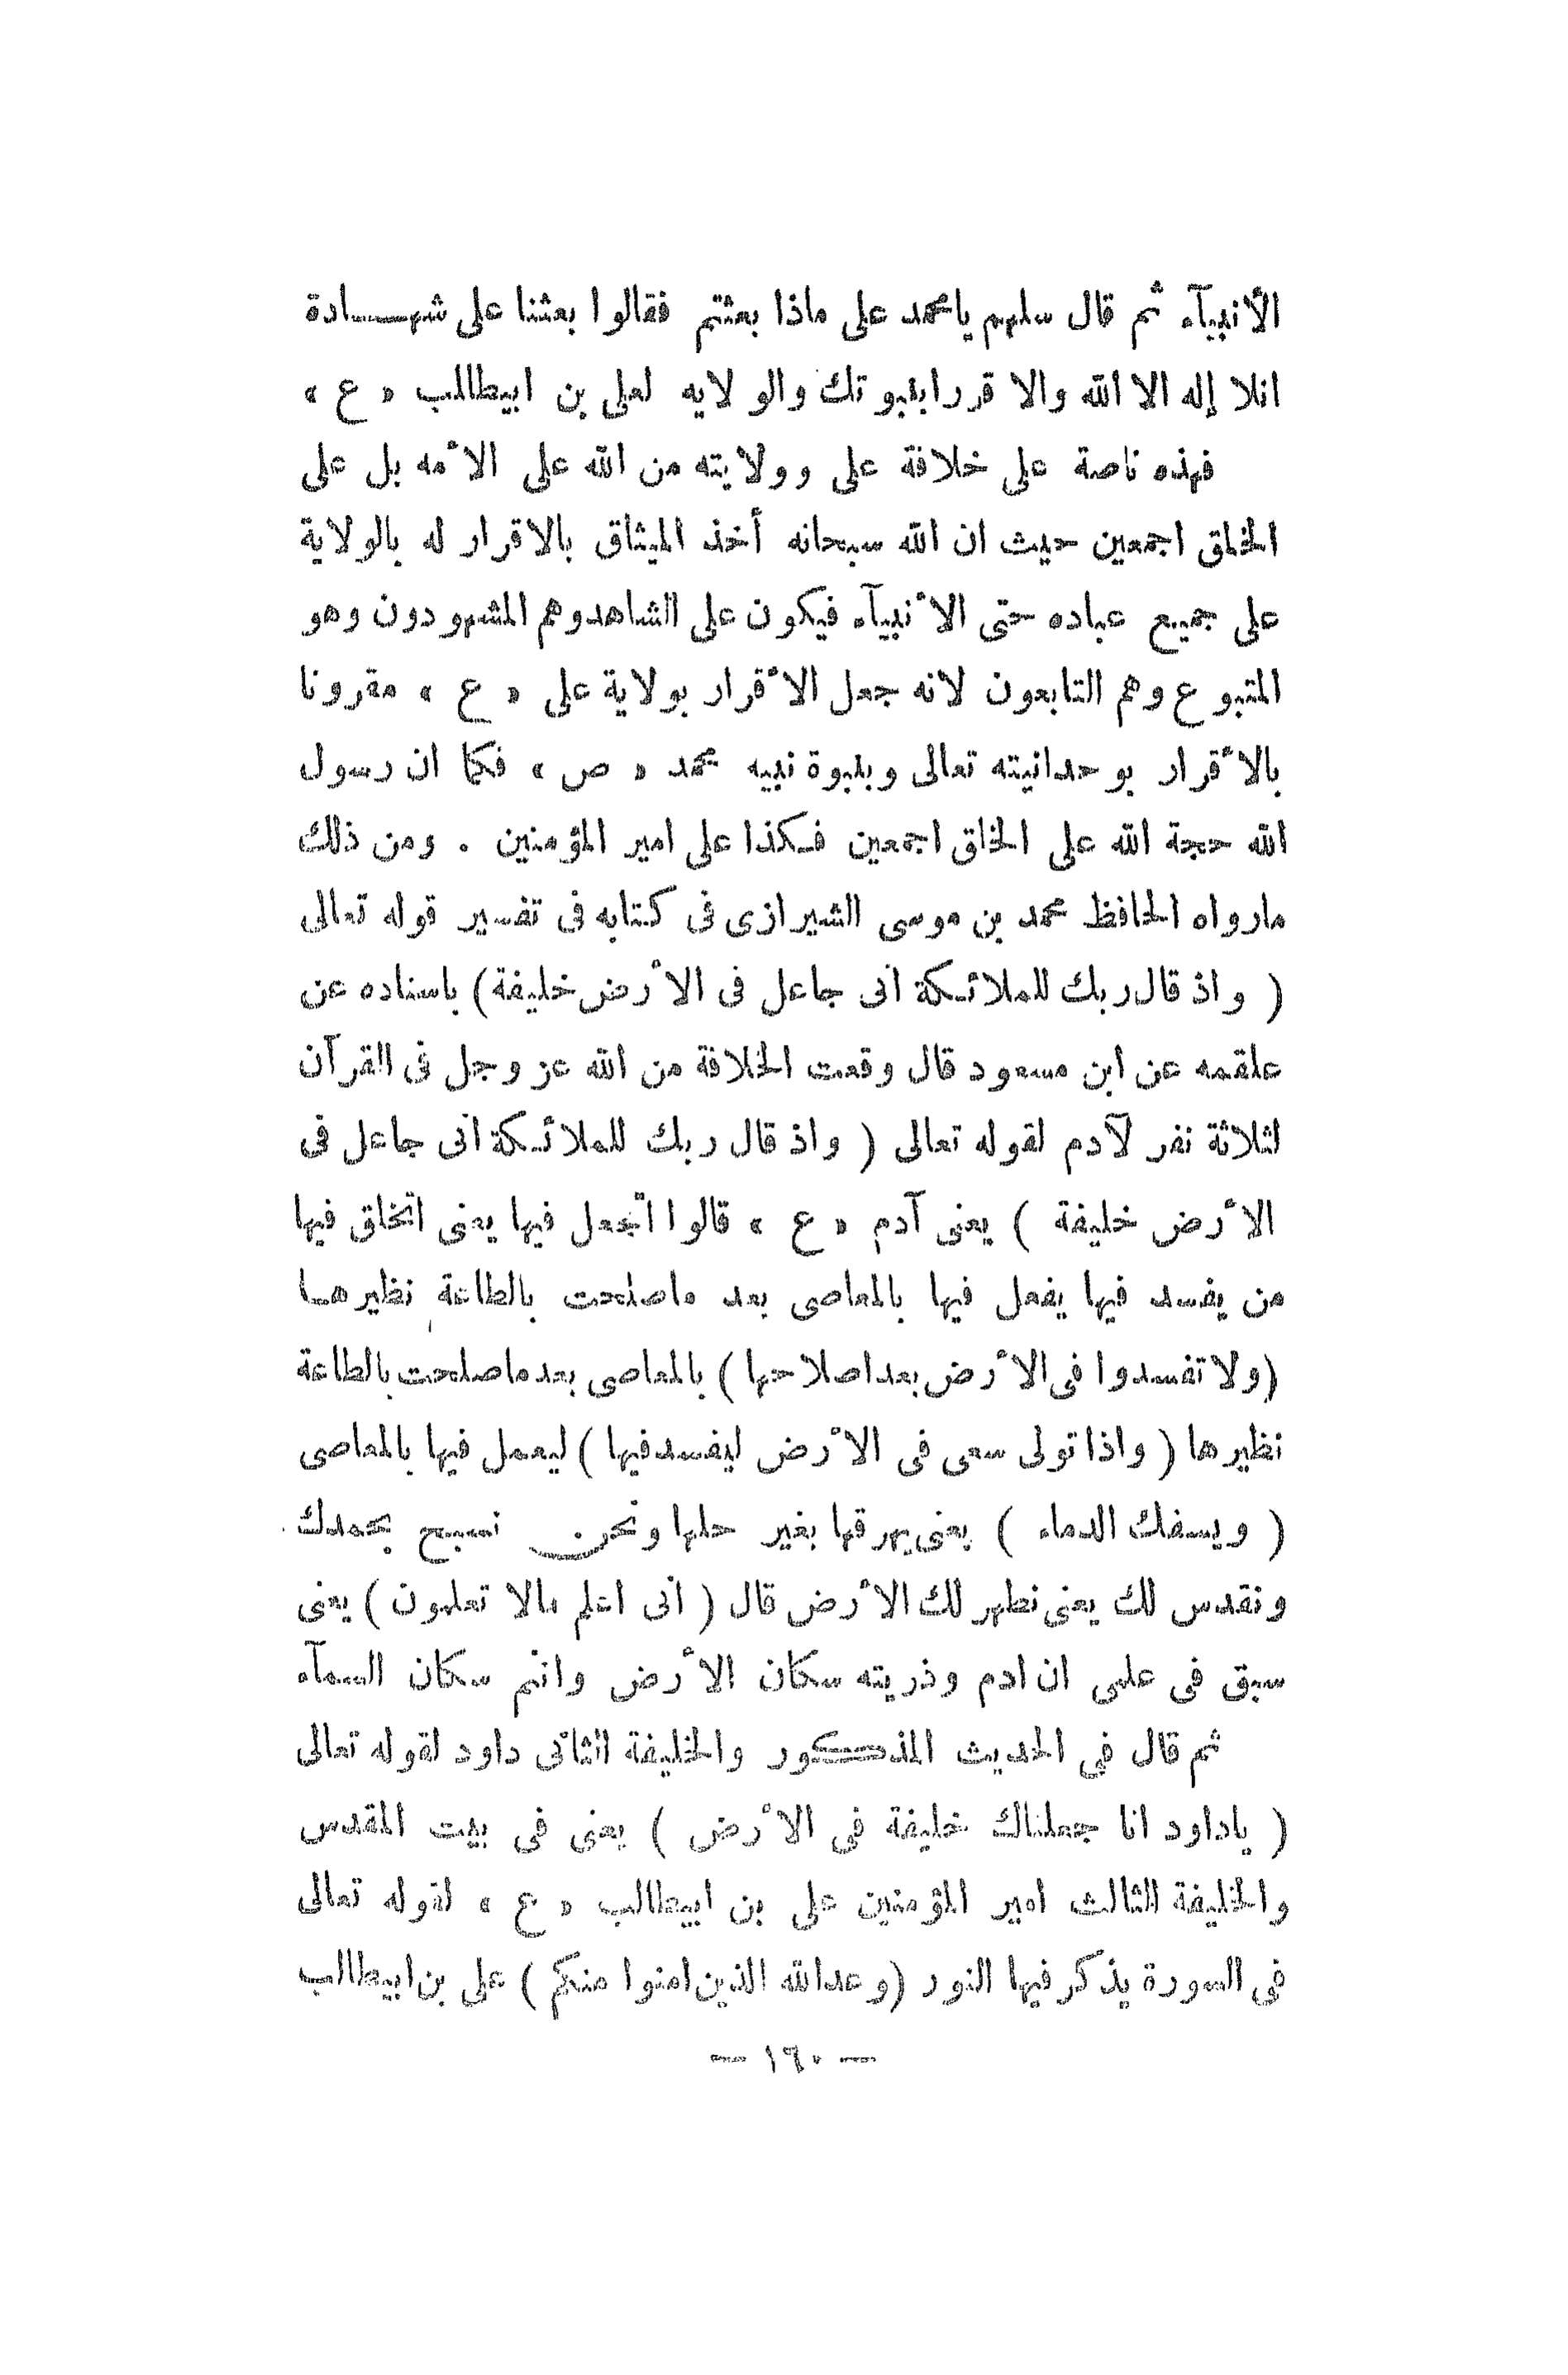 الأنبيآء ثم قال سلهم يا محمد على ماذا بعثتم فقالوا بعثنا على شهـادة
انلا إله الا الله والا قررابنبوتك والولايه لعلى بن ابيطالب « ع »
فهذه ناصة على خلافة على وولايته من الله على الأمه بل على
الخلق اجمعين حيث ان الله سبحانه أخذ الميثاق بالاقرار له بالولاية
على جميع عباده حتى الأنبيآء فيكون على الشاهدوهم المشهودون وهو
المتبوع وهم التابعون لانه جعل الأقرار بولاية على « ع » مقرونا
بالأقرار بوحدانيته تعالى وبنبوة نبيه محمد « ص » فكما ان رسول
الله حجة الله على الخلق اجمعين فكذا على امير المؤمنين . ومن ذلك
مارواه الحافظ محمد بن موسى الشيرازى فى كتابه فى تفسير قوله تعالى
( واذ قال ربك للملائكة انى جاعل فى الأرض خليفة ) باسناده عن
علقمه عن ابن مسعود قال وقعت الخلافة من الله عز وجل فى القرآن
لثلاثة نفر لآدم لقوله تعالى ( واذ قال ربك للملائكة انى جاعل فى
الأرض خليفة ) يعنى آدم « ع » قالوا اتجعل فيها يعنى اتخلق فيها
من يفسد فيها يفعل فيها بالمعاصى بعد ماصلحت بالطاعة نظيرهـا
(ولا تفسدوا فى الأرض بعد اصلاحها ) بالمعاصى بعدماصلحت بالطاعة
نظيرها ( واذا تولى سعى فى الأرض ليفسدفيها ) ليعمل فيها بالمعاصى
( ويسفك الدماء ) يعنى يهرقها بغير حلها ونحن نسبح بحمدك
ونقدس لك يعنى نطهر لك الأرض قال ( انى اعلم مالا تعلمون ) يعنى
سبق فى علمى ان ادم وذريته سكان الأرض وانتم سكان السمآء
ثم قال فى الحديث المذكور والخليفة الثانى داود لقوله تعالى
( ياداود انا جعلناك خليفة فى الأرض ) يعنى فى بيت المقدس
والخليفة الثالث امير المؤمنين على بن ابيطالب « ع » لقوله تعالى
فى السورة يذكر فيها النور (وعدالله الذين امنوا منكم ) على بن ابيطالب
— ١٦٠ —